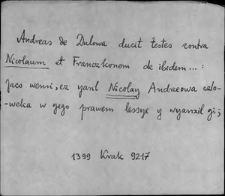 Andreas de Dalowa ducit testes contra
Nicolaum et Franczkonem de ibidem...:
jaco wemi, ez yant Nicolay Andrzeowa czlo-
weka w gego prawem lessye y wyranil gi;
1399 Krak 9217